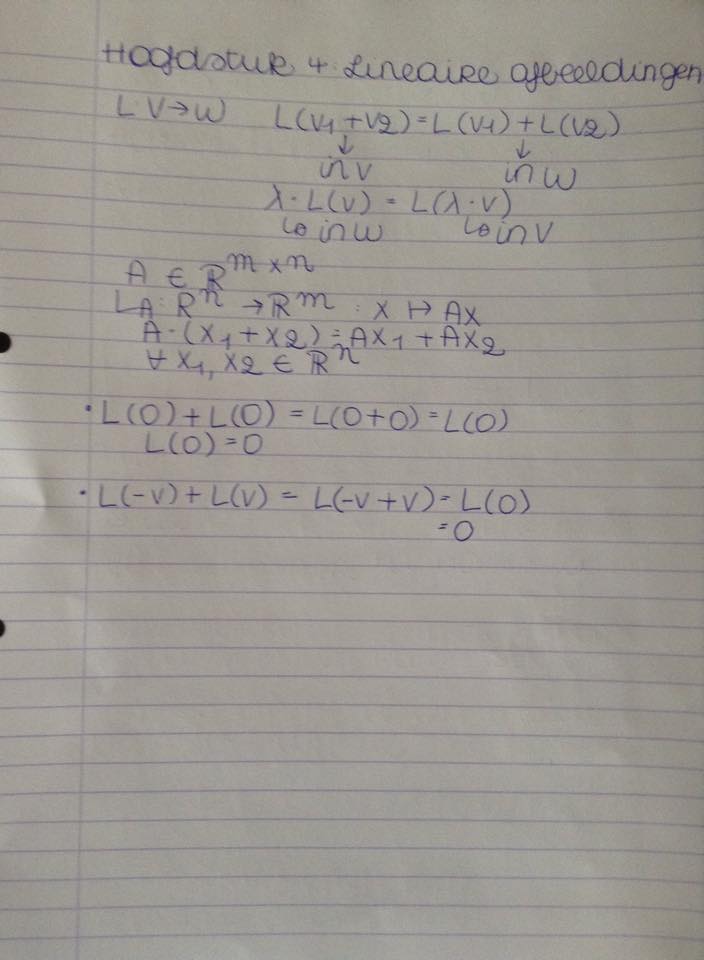 Hoofdstuk 4: Lineaire afbeeldingen
L V → W L(v1 + v2) = L(v1) + L(v2)
↓ ↓
in V in W
λ · L(v) = L(λ · v)
↳ in W ↳ in V
A ∈ ℝ^m×n
L_A: ℝ^n → ℝ^m : x ↦ Ax
A · (x1 + x2) = Ax1 + Ax2
∀ x1, x2 ∈ ℝ^n
· L(0) + L(0) = L(0+0) = L(0)
L(0) = 0
· L(-v) + L(v) = L(-v + v) = L(0)
= 0